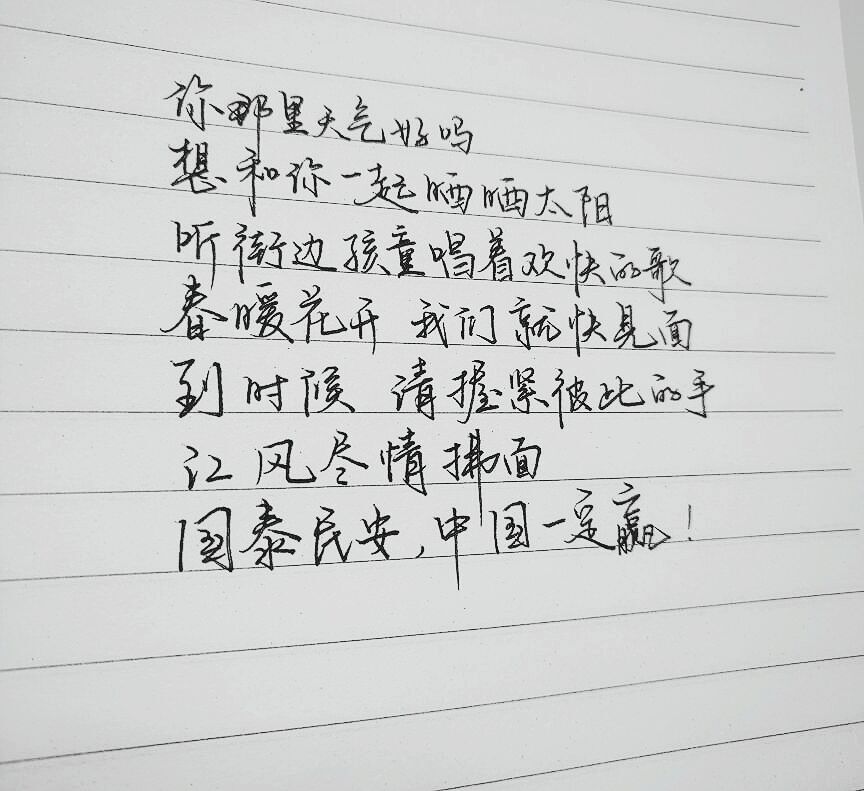 你那里天气好吗
想和你一起晒晒太阳
听街边孩童唱着欢快的歌
春暖花开 我们就快见面
到时候 请握紧彼此的手
江风尽情拂面
国泰民安,中国一定赢!